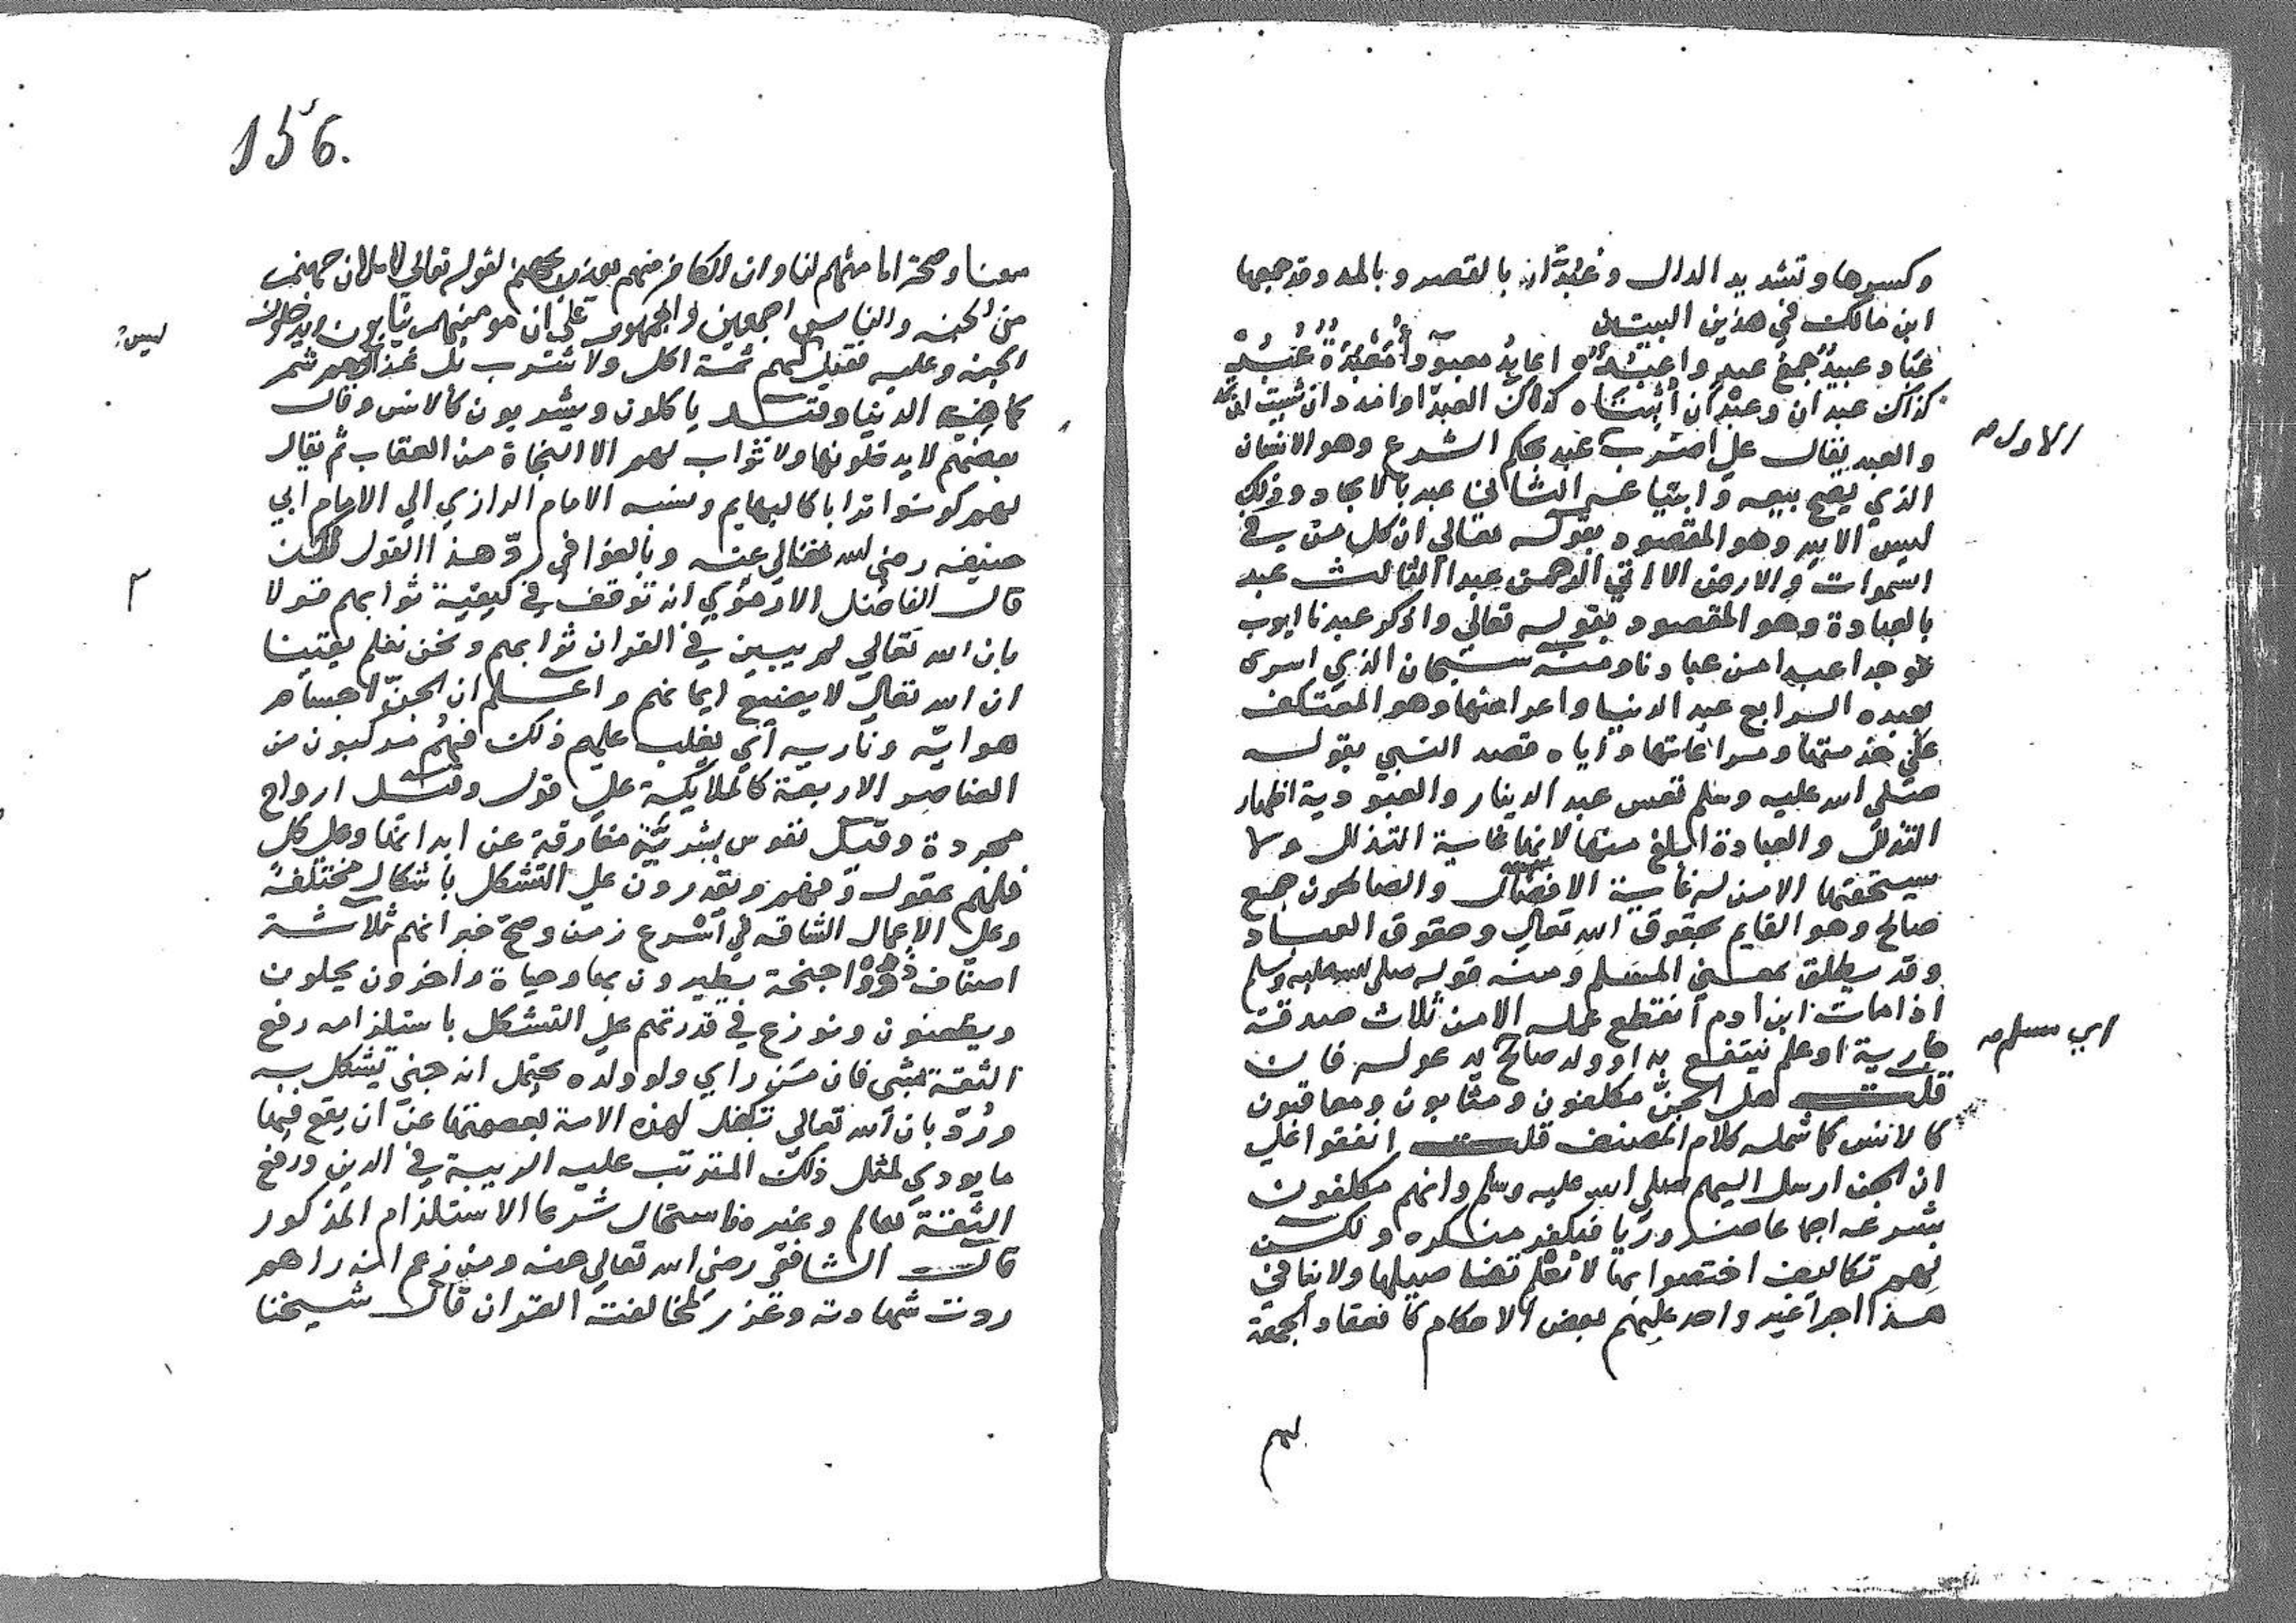 وكسرها وتشديد الدال وعبدّان بالقصر وبالمد وقد جمعها
ابن مالك في هذين البيتين
عباد عبيد جمع عبد واعبد ه اعابد معبودا معبدة عبد
كذاك عبدان وعبدان أثبتا ه كذاك العبدّا وامدد ان شئت ان تمد
والعبد يقال على اضرب عبد بحكم الشرع وهو الانسان
الاول
الذي يصح بيعه وابتياعه الثاني عبد بالايجاد وذلك
ليس الا لله وهو المقصود بقوله تعالى ان كل من في
السموات والارض الا اتي الرحمن عبدا الثالث عبد
بالعبادة وهو المقصود بقوله تعالى واذكر عبدنا ايوب
فوجدا عبدا من عبادنا ومنه سبحان الذي اسرى
بعبده الرابع عبد الدنيا واعراضها وهو المعتكف
على خدمتها ومراعاتها واياه قصد النبي بقوله
صلى الله عليه وسلم تعس عبد الدينار والعبودية اظهار
التذلل والعبادة ابلغ منها لانها غاية التذلل ولا
يستحقها الا من له غاية الافضال والصالحون جمع
صالح وهو القايم بحقوق الله تعالى وحقوق العباد
وقد يطلق بمعني المسلم ومنه قوله صلى الله عليه وسلم
اذا مات ابن ادم انقطع عمله الا من ثلاث صدقة
جارية او علم ينتفع به او ولد صالح يدعو له فان
اي مسلم
قلت هل الجنّ مكلفون ومثابون ومعاقبون
كالانس كما شمله كلام المصنف قلت اتفقوا على
ان الجن ارسل اليهم صلى الله عليه وسلم وانهم مكلفون
بشرعه اجماعا ضروريا فيكفر منكره ولكن
لهم تكاليف اختصوا بها لا نعلم تفاصيلها ولا ينافي
هذا اجرا غير واحد عليهم بعض الاحكام كانعقاد الجمعة
لهم
156.
معنا وصحة امامتهم لنا وان الكافر منهم يعذب بجهنم لقوله تعالى لاملان جهنم
من الجنه والناس اجمعين والجمهور على ان مومنيهم يثابون ويدخلون
الجنه وعليه فقيل لهم ثمة اكل ولا شرب بل غذاوهم شم
ليس
كما في الدنيا وقيل ياكلون ويشربون كالانس وقال
بعضهم لا يدخلونها ولا ثواب لهم الا النجاة من العقاب ثم يقال
لهم كونوا ترابا كالبهايم ونسبه الامام الرازي الي الامام ابي
حنيفه رضي الله تعالى عنه وبالغوا في ردّ هذا القول لكن
قال الفاضل الارموي انه توقف في كيفية ثوابهم قولا
بان الله تعالى لم يبين في القران ثوابهم ونحن نعلم يقينا
ان الله تعالى لا يضيع ايمانهم واعلم ان الجنّ اجسام
هوايّه وناريه أي يغلب عليهم ذلك فهم مركبون من
العناصر الاربعة كالملايكة على قول وقيل ارواح
مجردة وقيل نفوس بشريّة مفارقة عن ابدانها وعلى كل
فلهم عقول وفهم ويقدرون على التشكل باشكال مختلفة
وعلى الاعمال الشاقه في أسرع زمن وصح خبر انهم ثلاثة
اصناف ذوو اجنحة يطيرون بها وحياة واخرون يحلون
ويظعنون ونوزع في قدرتهم على التشكل باستلزامه رفع
الثقة بشي فان من راي ولو ولده يحتمل انه جني تشكل به
وردّ بان الله تعالى تكفل لهذه الامة بعصمتها عن ان يقع فيها
ما يودي لمثل ذلك المترتب عليه الريبة في الدين ورفع
الثقة بعالم وغيره فاستحال شرعا الاستلزام المذكور
قال الشافعي رضي الله تعالى عنه ومن زعم انه راهم
ردت شهادته وعزر لمخالفته القران قال شيخنا